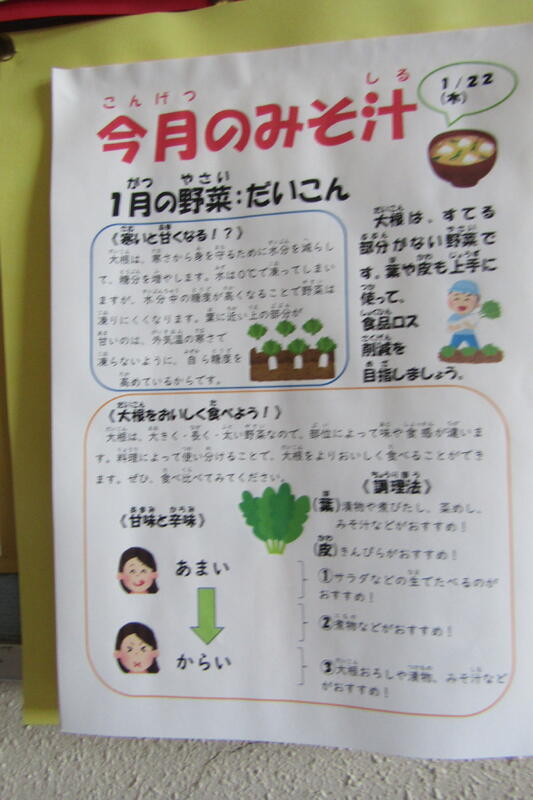 1/22
(水)
こんげつ しる
今月のみそ汁
がつ やさい
1月の野菜：だいこん
《寒いと甘くなる！？》
大根は、寒さから身を守るために水分を減らし
て、糖分を増やします。水は0℃で凍ってしまい
ますが、水分中の糖度が高くなることで野菜は
凍りにくくなります。葉に近い上の部分が
甘いのは、外気温の寒さで
凍らないように、自ら糖度を
高めているからです。
大根は、すてる
部分がない野菜で
す。葉や皮も上手に
使って、
食品ロス
削減を
目指しましょう。
《大根をおいしく食べよう！》
大根は、大きく・長く・太い野菜なので、部位によって味や食感が違いま
す。料理によって使い分けることで、大根をよりおいしく食べることができ
ます。ぜひ、食べ比べてみてください。
あまみ からみ
《甘味と辛味》
あまい
からい
ちょうりほう
《調理法》
(葉)漬物や煮びたし、菜めし、
みそ汁などがおすすめ！
(皮)きんぴらがおすすめ！
①サラダなどの生でたべるのが
おすすめ！
②煮物などがおすすめ！
③大根おろしや漬物、みそ汁など
がおすすめ！